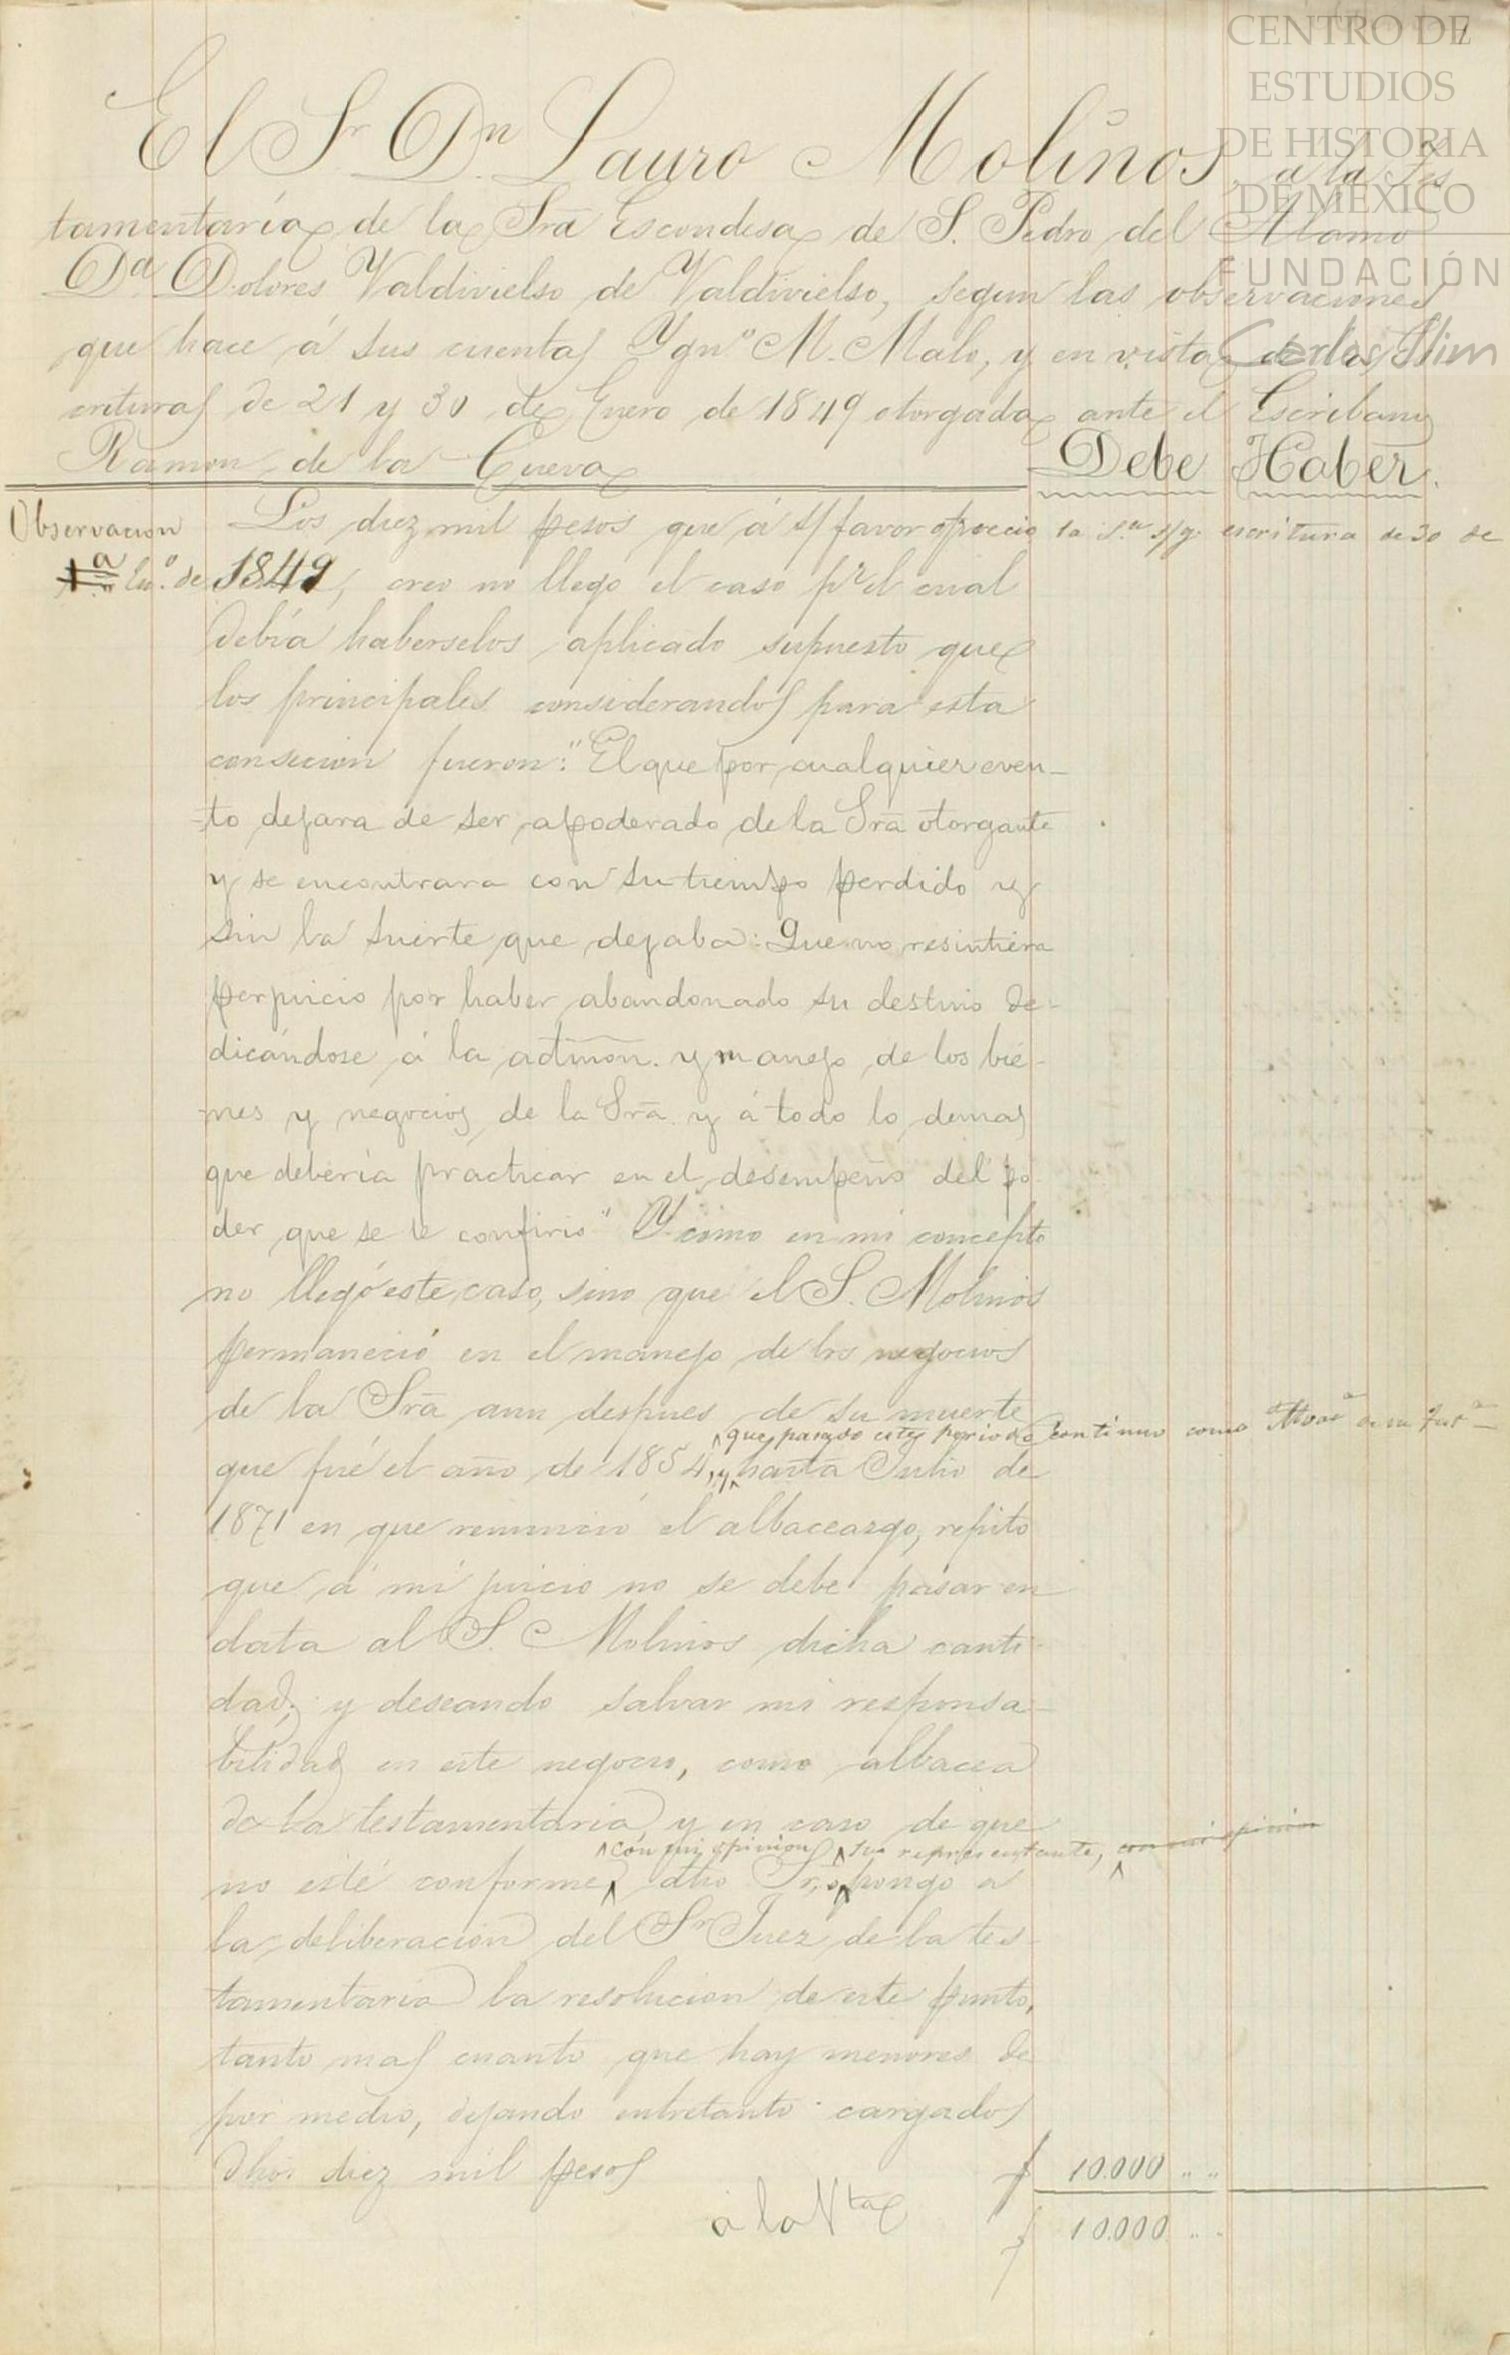 CENTRO DE
ESTUDIOS
DE HISTORIA
DE MÉXICO
FUNDACIÓN
Carlos Slim
El Sr. Dn. Lauro Molinos, a la Tes
tamentaría de la Sra Excondesa de S. Pedro del Alamo
Da. Dolores Valdivielso de Valdivielso, segun las observaciones
que hace á sus cuentas Ygno. M. Malo, y en vista de las
crituras de 21 y 30 de Enero de 1849 otorgada ante el Escribano
Ramon de la Cueva
Debe Haber.
Observacion
1a
Los diez mil pesos que á s/ favor ofrecio la S.a s/g. escritura de 30 de
En.o de 1849, creo no llegó el caso pr el cual
debía haberselos aplicado supuesto que
los principales considerandos para esta
consecion fueron: "El que por cualquier even-
-to dejara de ser apoderado de la Sra otorgante
y se encontrara con su tiempo perdido y
sin la suerte que dejaba: Que no resintiera
perjuicio por haber abandonado su destino de-
dicándose á la admon. y manejo de los bie-
-nes y negocios de la Sra. y á todo lo demas
que debería practicar en el desempeño del po-
der que se le confirió" Y como en mi concepto
no llegó este caso, sino que el S. Molinos
permaneció en el manejo de los negocios
de la Sra aun despues de su muerte
que pasado este periodo continuo como
que fué el año de 1854, y hasta Julio de
1871 en que renunció el albaceazgo, repito
que á mi juicio no se debe pasar en
data al S. Molinos dicha canti-
dad; y deseando salvar mi responsa-
bilidad en este negocio, como albacea
de la testamentaria y en caso de que
con mi opinion su representante, con mi opinion
no esté conforme dho Sr, o pongo á
la deliberación del Sr Juez de la tes-
tamentaría la resolucion de este punto,
tanto mas cuanto que hay menores de
por medio, dejando entretanto cargados
dhos. diez mil pesos
10.000 " "
á la Vta
10.000 " "